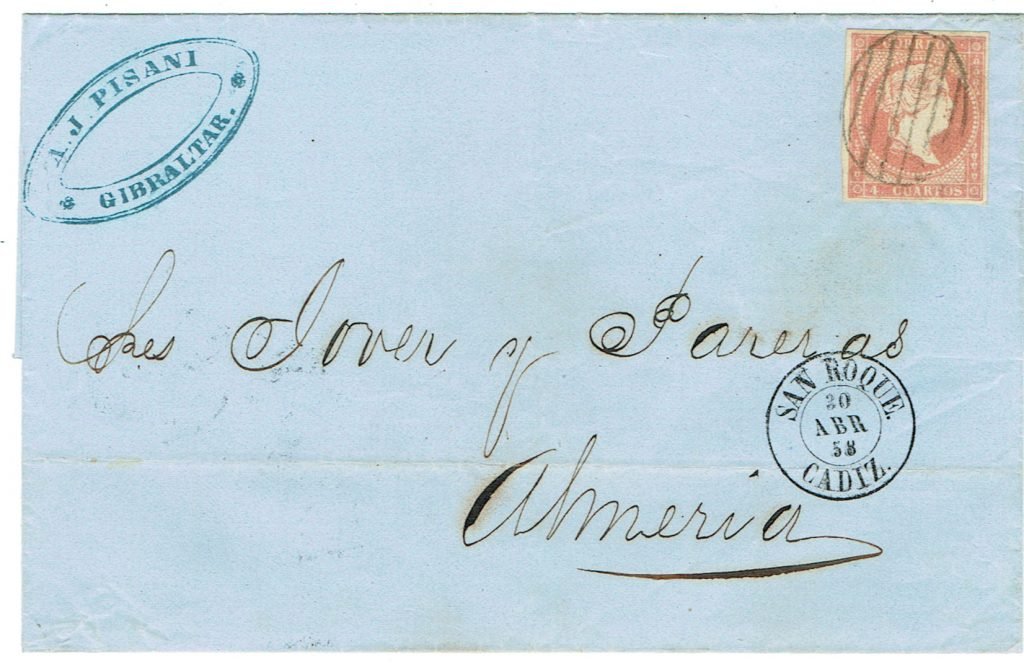 A. J. PISANI
GIBRALTAR.
CORREOS
4 CUARTOS
Sres Jover y Pareras
Almeria
SAN ROQUE.
30
ABR
58
CADIZ.